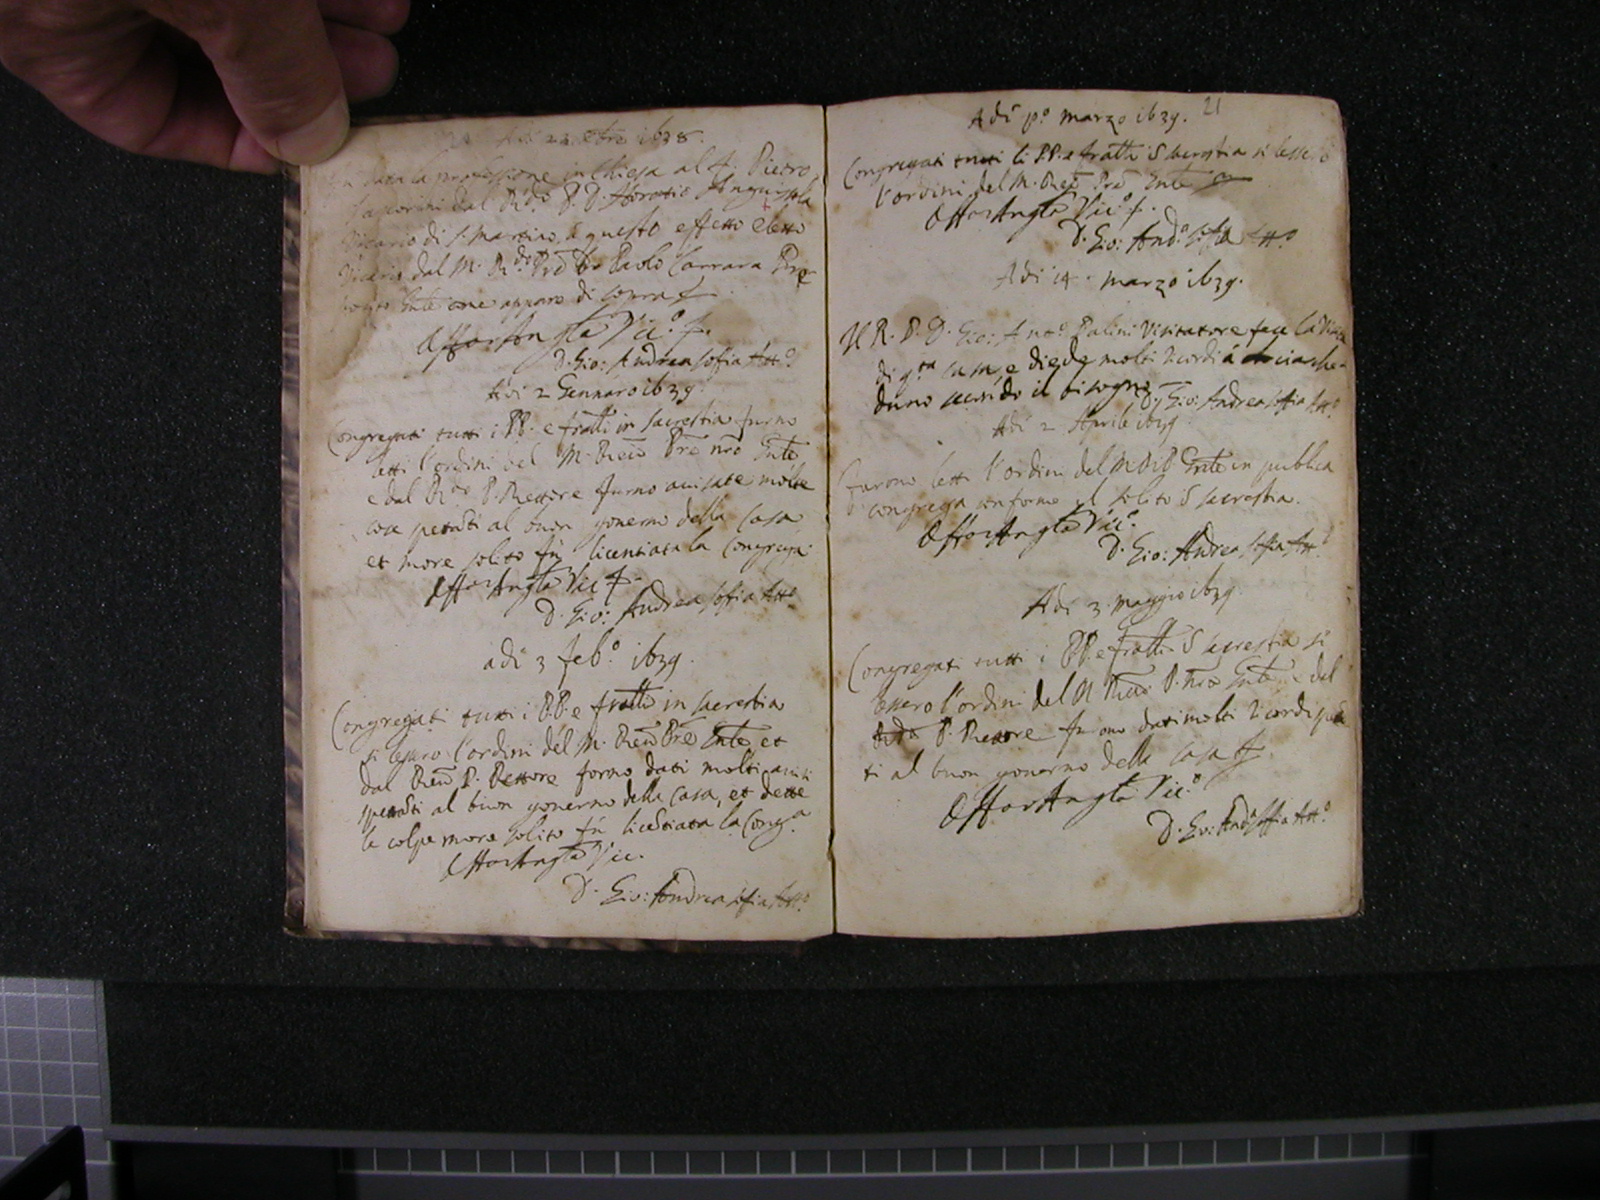 Adi 22 xbre 1638.
data la professione in Chiesa al f. Pietro
dal R.do P. D. Horatio Anguissola
Vicario di S. Martino, à questo effetto eletto
Vicario dal M. R.do Pre D. Paolo Carrara Pre
come appare di sopra
D. Gio: Andrea Sofia Att.o
Adi 2 Gennaro 1639
Congregati tutti i PP. e fratti in sacrestia furno
letti l'ordini del M. Rdo Pre nro Gnle
e dal R.do P. Rettore furno avisate molte
cose al buon governo della Casa
et more solito fù licentiata la Congrega
D. Gio: Andrea Sofia Att.o
adi 3 feb.o 1639.
Congregati tutti i P.P. e fratti in sacrestia
si lessero l'ordini del M. Rdo Pre Gnle et
dal Rdo P. Rettore forno dati molti avisi
al buon governo della Casa, et dette
le colpe more solito fù licentiata la Cong.a
D. Gio: Andrea Sofia Att.o
21
Adi p.o marzo 1639.
Congregati tutti li P.P. e fratti S sacrestia si lesse
l'ordini del M. Rdo Pre Gnle
D. Gio: And.a Sofia Att.o
Adi 14 marzo 1639.
Il R. P. D. Gio: Ant.o Palini Visitatore fece la Visita
di q.ta casa, e diede molti ricordi à ciasche-
duno secondo il bisogno D. Gio: Andrea Sofia Att.o
Adi 2 Aprile 1639
furono letti l'ordini del M R P Gnle in publica
congrega conforme il solito S sacrestia.
D. Gio: Andrea Sofia Att.o
Adi 3 maggio 1639
Congregati tutti i PP. e fratti S sacrestia si
lessero l'ordini del M Rdo P. nro Gnle e del
P. Rettore furono dati molti ricordi
ti al buon governo della Casa
D. Gio: And.a Sofia Att.o